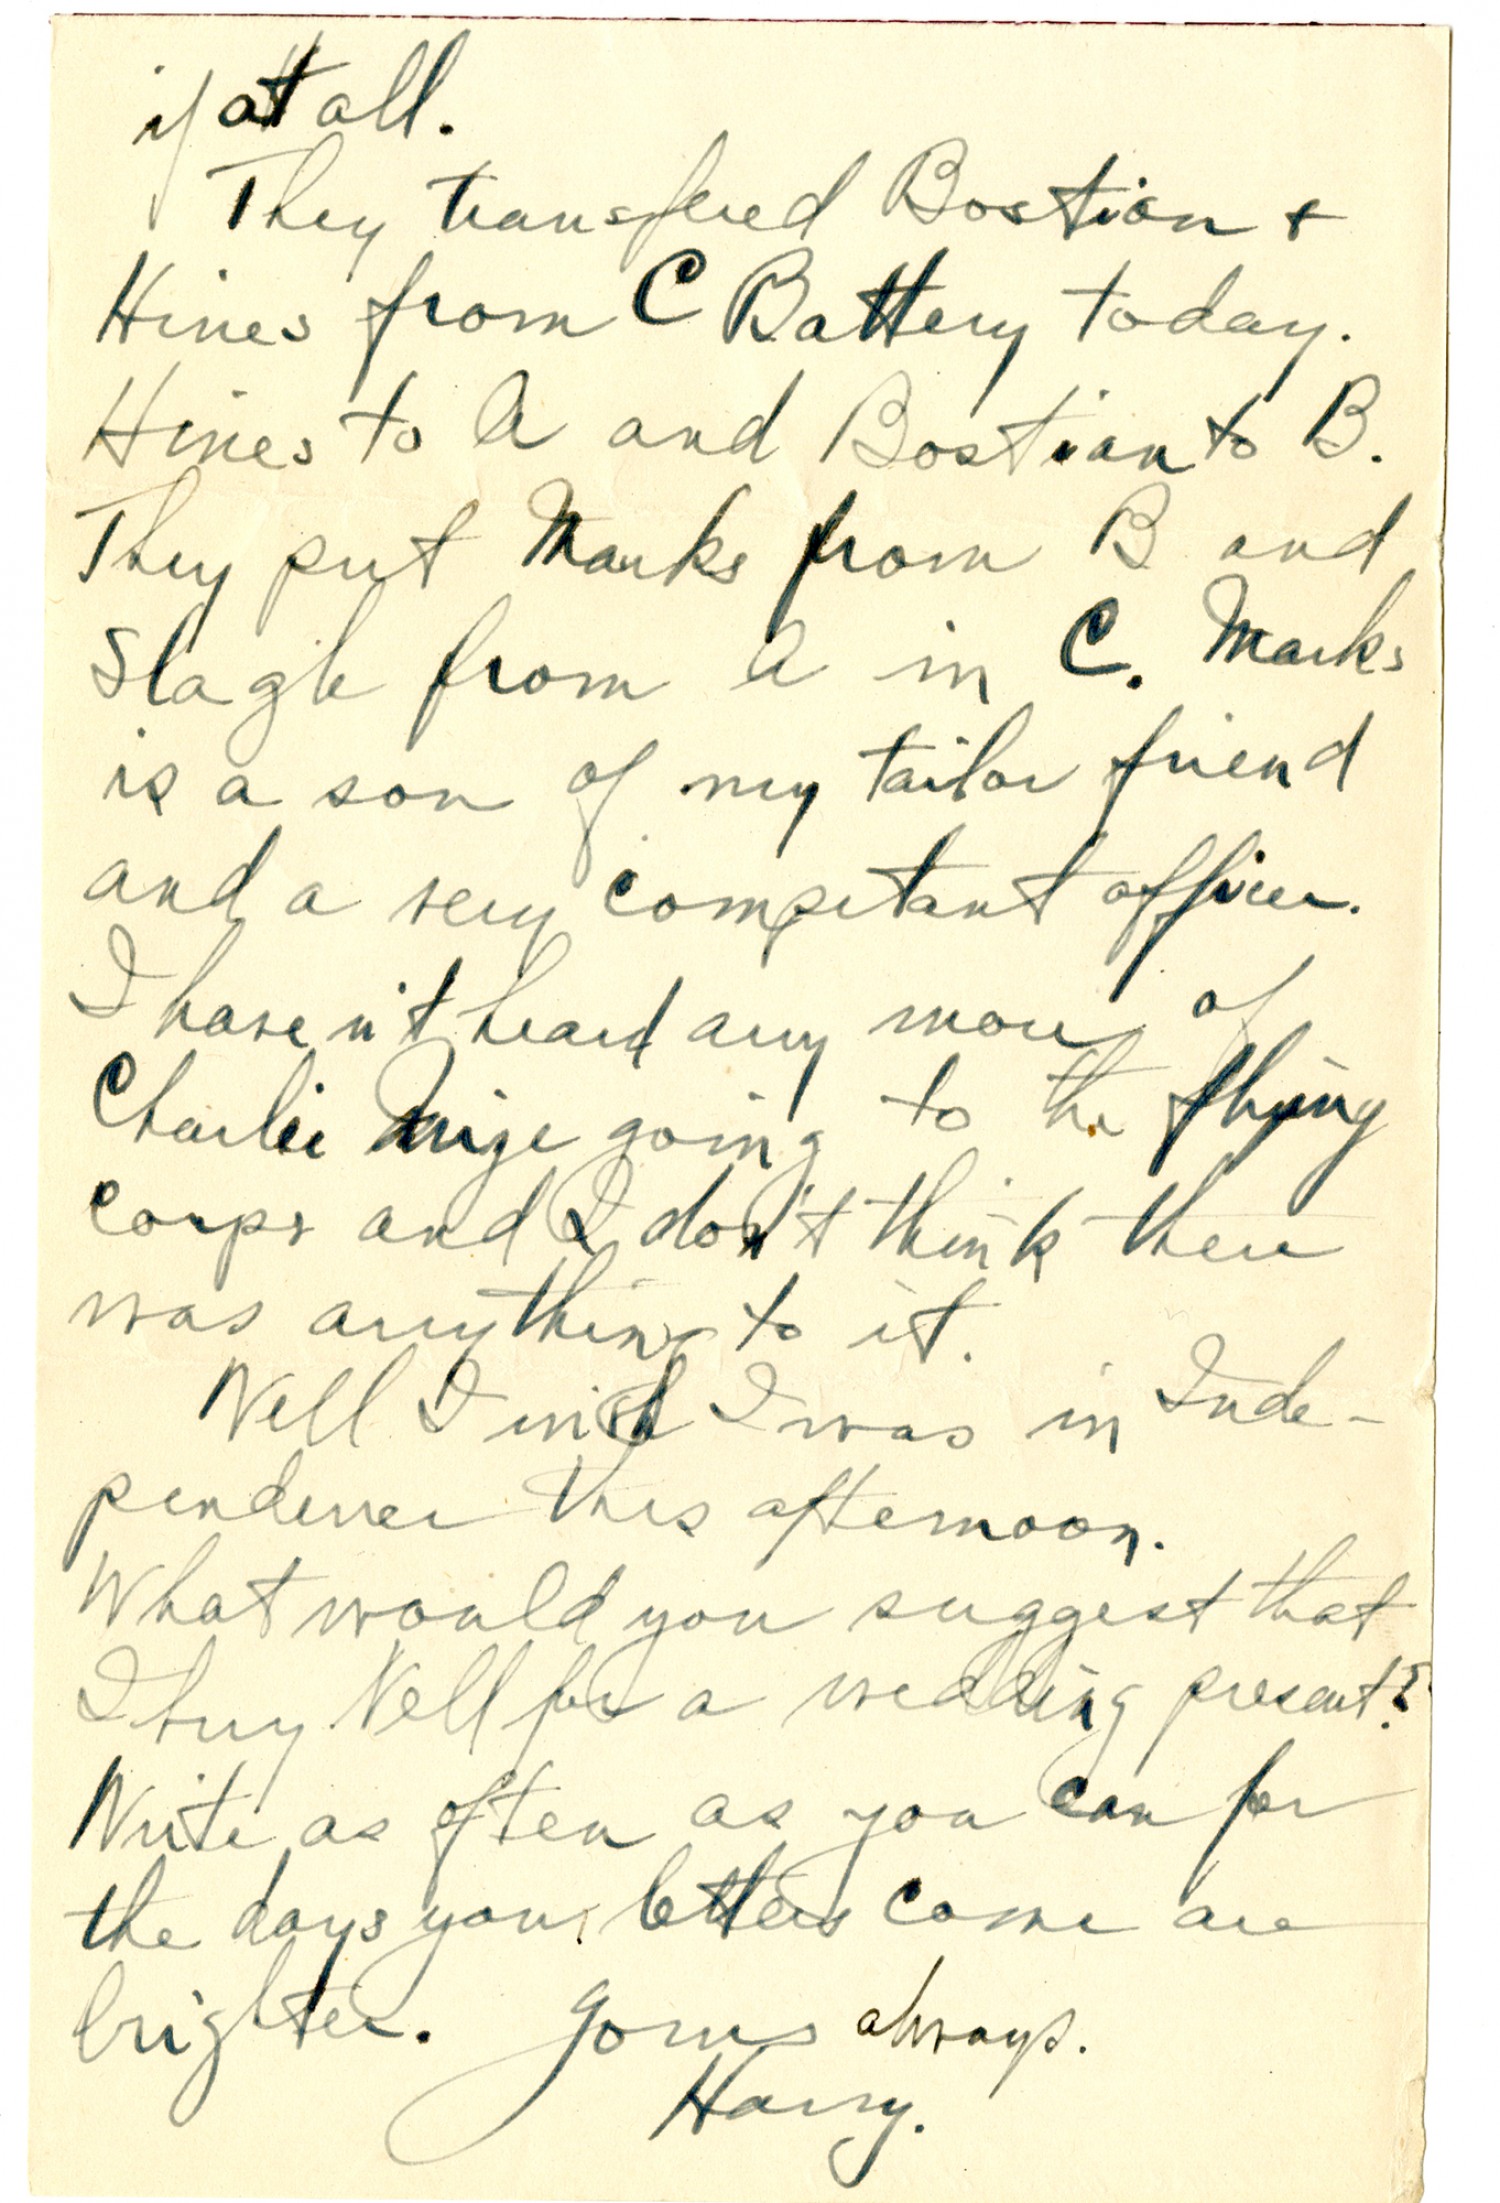 if at all.
They transfered Bostian +
Hines from C Battery today.
Hines to A and Bostian to B.
They put Marks from B and
Slagle from A in C. Marks
is a son of my tailor friend
and a very competant officer.
I have n't heard any more of
Charlie Mize going to the flying
corps and I don't think there
was anything to it.
Well I wish I was in Inde-
pendence this afternoon.
What would you suggest that
I buy Nell for a wedding present?
Write as often as you can for
the days your letters come are
brighter. Yours always.
Harry.